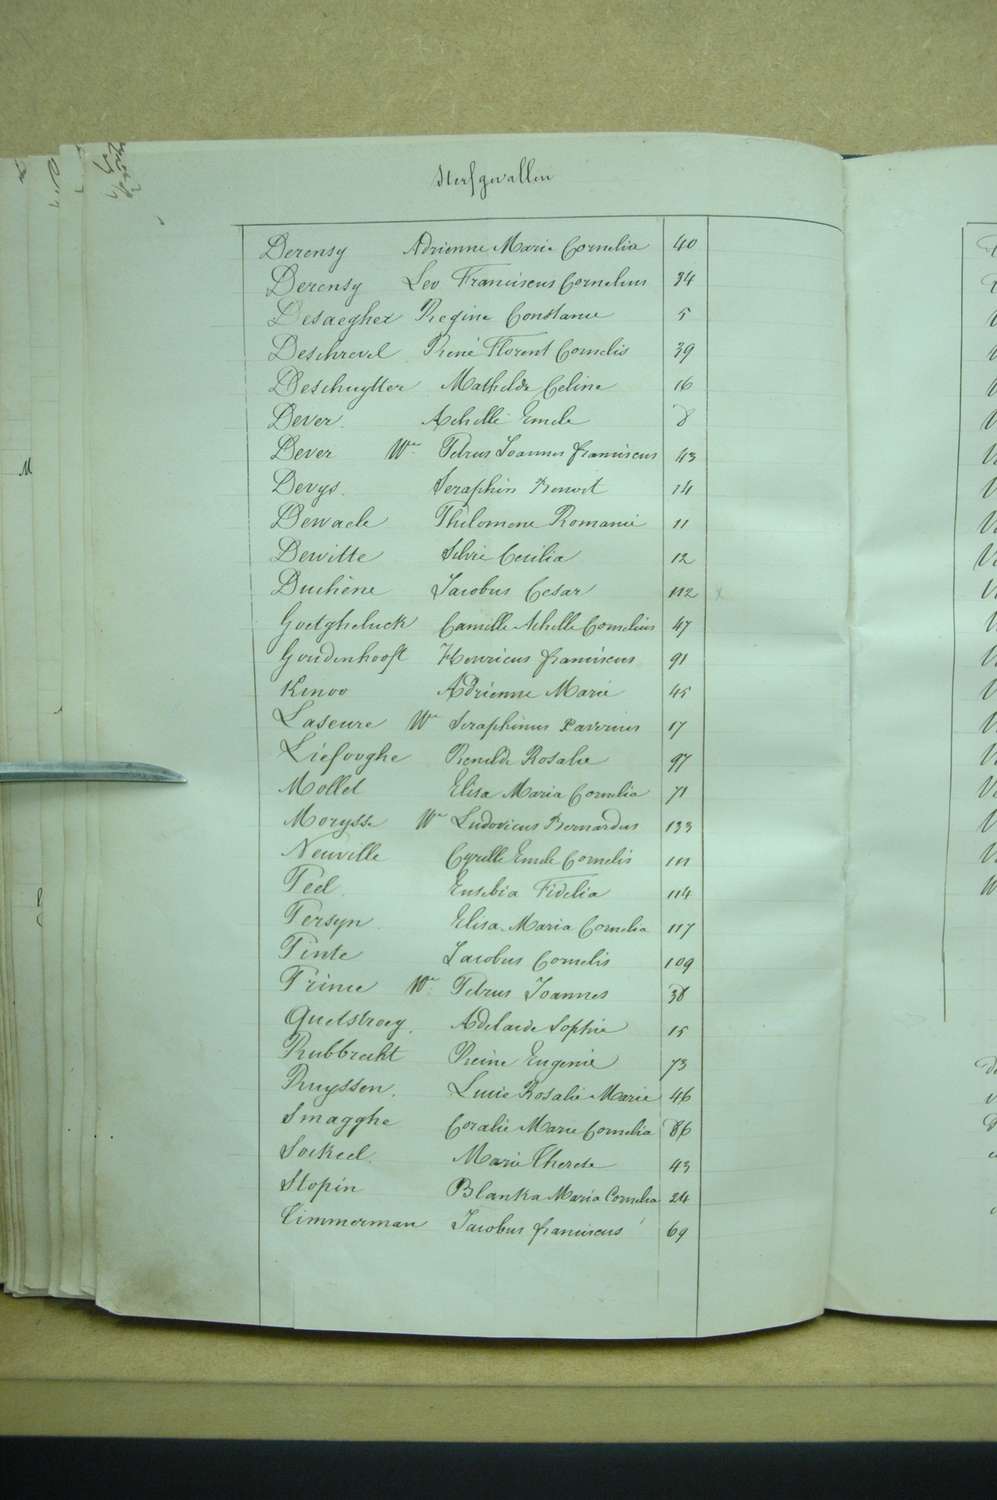 Sterfgevallen
Derensy Adrienne Marie Cornelia 40
Derensy Leo Franciscus Cornelius 34
Desaegher Regine Constance 5
Deschrevel René Florent Cornelis 39
Deschuytter Mathilde Celine 16
Dever Achille Emile 8
Dever We Petrus Joannes franciscus 43
Devys Seraphin Benoit 14
Dewaele Philomene Romanie 11
Dewitte Silvie Cecilia 12
Duchêne Jacobus Cesar 112
Goetgheluck Camille Achille Cornelius 47
Goudenhooft Henricus franciscus 91
Kinoo Adrienne Marie 45
Laseure We Seraphinus Xaverius 17
Liefooghe Renilde Rosalie 97
Mollet Elisa Maria Cornelia 71
Morysse We Ludovicus Bernardus 133
Neuville Cyrille Emile Cornelis 101
Peel Eusebia Fidelia 114
Persyn Elisa Maria Cornelia 117
Pinte Jacobus Cornelis 109
Prince We Petrus Joannes 38
Quetstroey Adelaide Sophie 15
Rubbrecht Reine Eugenie 73
Ruyssen Lucie Rosalie Marie 46
Smagghe Coralie Marie Cornelia 86
Sockeel Marie Therese 43
Stopin Blanka Maria Cornelia 24
Timmerman Jacobus franciscus 69